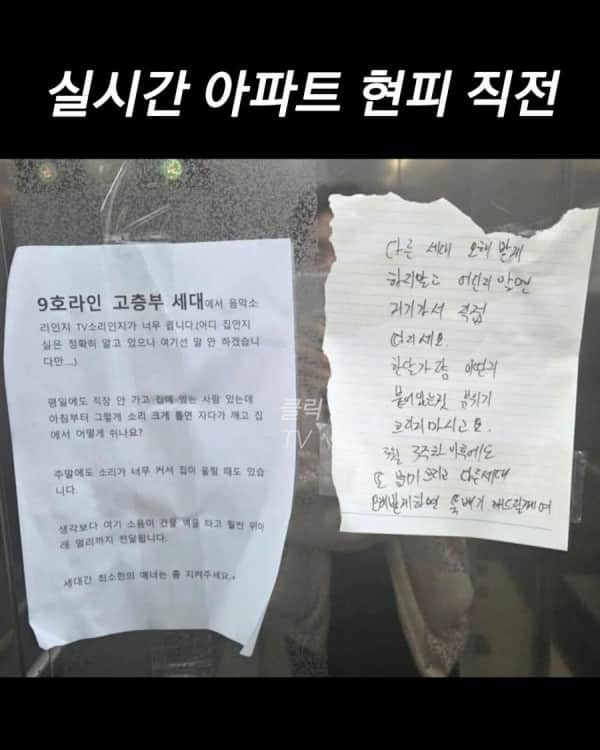 실시간 아파트 현피 직전
9호라인 고층부 세대에서 음악소
리인지 TV소리인지가 너무 큽니다(어디 집인지
실은 정확히 알고 있으나 여기선 말 안 하겠습니
다만....)
평일에도 직장 안 가고 집에 있는 사람 있는데
아침부터 그렇게 소리 크게 틀면 자다가 깨고 집
에서 어떻게 쉬나요?
주말에도 소리가 너무 커서 집이 울릴 때도 있습
니다.
생각보다 여기 소음이 건물 벽을 타고 훨씬 위아
래 멀리까지 전달됩니다.
세대간 최소한의 매너는 좀 지켜주세요.
다른 세대 오해 받게
하지말고 어딘지 알면
거기가서 직접
하세요.
한달가량
붙어있는것
마시고요.
3월 3주차 이후에도
또 다른세대
오해받게하면 드릴께여
클릭
TV